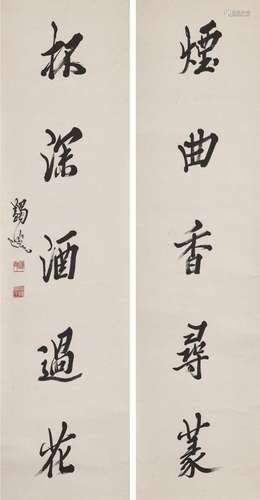 煙曲香尋篆
杯深酒過花